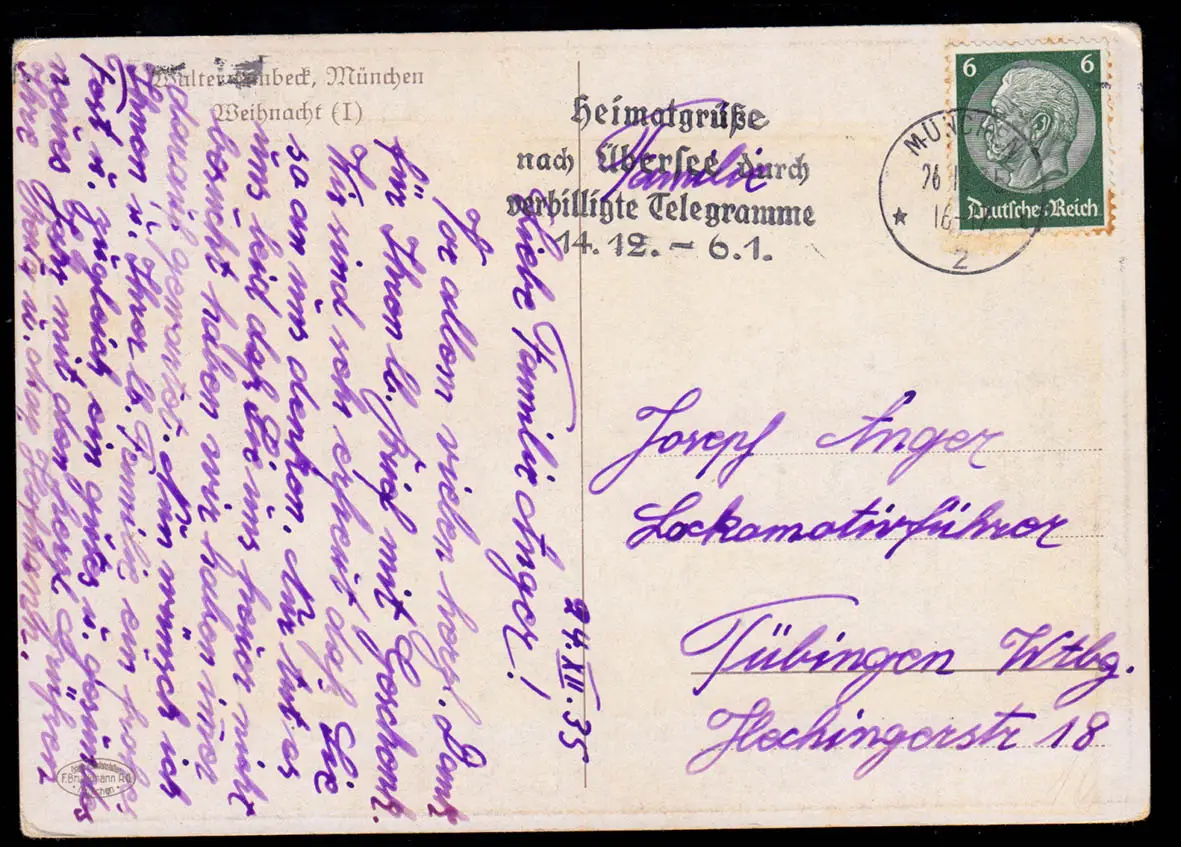 Walter Einbeck, München
Weihnacht (I)
Heimatgrüße
nach Übersee durch
verbilligte Telegramme
14.12. – 6.1.
MÜNCHEN
2
6
6
Deutsches Reich
Familie
Josepf Anger
Lockamotivführer
Tübingen Wtbg.
Hechingerstr 18
24.XII.35
Liebe Familie Anger!
Vor allem vielen herzl. Dank
für Ihren lb. Brief mit Geschenk.
Wir sind sehr erfreut daß Sie
so an uns denken. Nur tut es
uns leid daß Sie uns heuer nicht
besucht haben wir haben immer
darauf gewartet. Nun wünsch ich
Ihnen u. Ihrer lb. Familie ein frohes
Fest u. zugleich ein gutes u. gesundes
neues Jahr mit den herzl. Grüßen
Ihre u.
F. Bruckmann A.G.
München